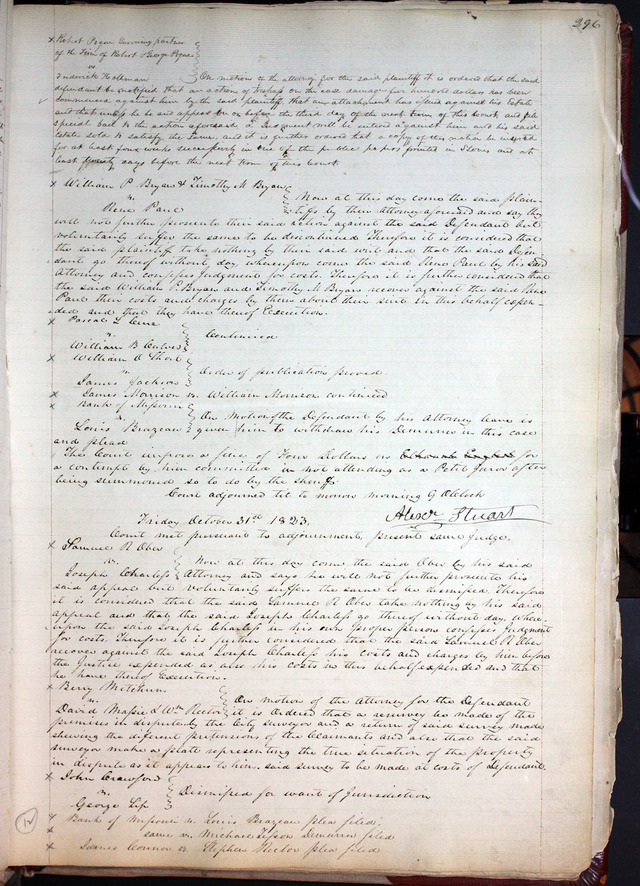 296
x Robert Pogue surviving partner
of the Firm of Robert & George Pogue
vs
Frederick Hollman } On motion of the attorney for the said plaintiff it is ordered that the said
defendant be notified that an action of trespass on the case damage five hundred dollars has been
commenced against him by the said plaintiff, that an attachment has issued against his Estate
and that unless he be and appear on or before the third day of the next term of this court and file
special bail to the action aforesaid Judgment will be entered against him and his said
Estate sold to satisfy the same, and it is further ordered that a copy of this order be inserted
for at least four weeks successively in one of the public papers printed in St Louis and at
least twenty days before the next term of this court.
x William P Bryan & Timothy M Bryan
vs
Rene Paul } Now at this day come the said Plain-
tiffs by their Attorney aforesaid and say they
will not further prosecute their said action against the said Defendant but
voluntarily suffer the same to be discontinued Therefore it is considered that
the said plaintiff take nothing by their said writ and that the said Defen-
dant go thereof without day, whereupon came the said Rene Paul by his said
Attorney and confesses Judgment for costs. Therefore it is further considered that
the said William P. Bryan and Timothy M Bryan recover against the said Rene
Paul their costs and charges by them about their suit in this behalf expen-
ded and that they have thereof Execution.
x Pascal L Cerre
vs } Continued
William B
x William O Short
vs } Order of publication proved
James Jackson
x James Morrison vs. William Morrison continued
x Bank of Missouri
vs } On Motion of the Defendant by his Attorney leave is
Louis Brazeau given him to withdraw his Demurrer in this case
and plead
The Court impose a fine of Four Dollars on for
a contempt by him committed in not attending as a Petit Juror after
being summoned so to do by the sheriff
Court adjourned til to morrow morning 9 oClock
Alexr Stuart
Friday October 31st 1823,
Court met pursuant to adjournment, present same Judge.
x Samuel R Ober
vs
Joseph Charless } Now at this day come the said Ober by his said
Attorney and says he will not further prosecute his
said appeal but voluntarily suffers the same to be dismissed. Therefore
it is considered that the said Samuel R Ober take nothing by his said
appeal and that the said Joseph Charless go thereof without day, where-
upon the said Joseph Charless in his own proper person confesses Judgment
for costs. Therefore it is further considered that the said Samuel R Ober
recover against the said Joseph Charless his costs and charges by him before
the Justice expended as also his costs in this behalf expended and that
he have thereof Execution.
x Berry Mitchum
vs
David Massie & Wm Rector } On motion of the Attorney for the Defendant
it is ordered that a resurvey be made of the
premises in dispute by the City surveyor and a return of said survey made
shewing the different pretensions of the Claimants and also that the said
surveyor make a platt representing the true situation of the property
in dispute as it appears to him. said survey to be made at costs of Defendant.
x John Crawford
vs } Dismissed for want of Jurisdiction
George Sip
x Bank of Missouri vs. Louis Brazeau plea filed.
x same vs. Michael Tesson Demurrer filed
x James Connor vs Stephen Rector plea filed
12